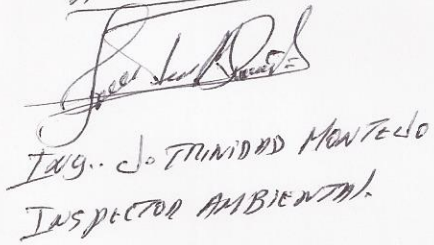 Ing.. J. TRINIDAD MONTEJO
INSPECTOR AMBIENTAL.